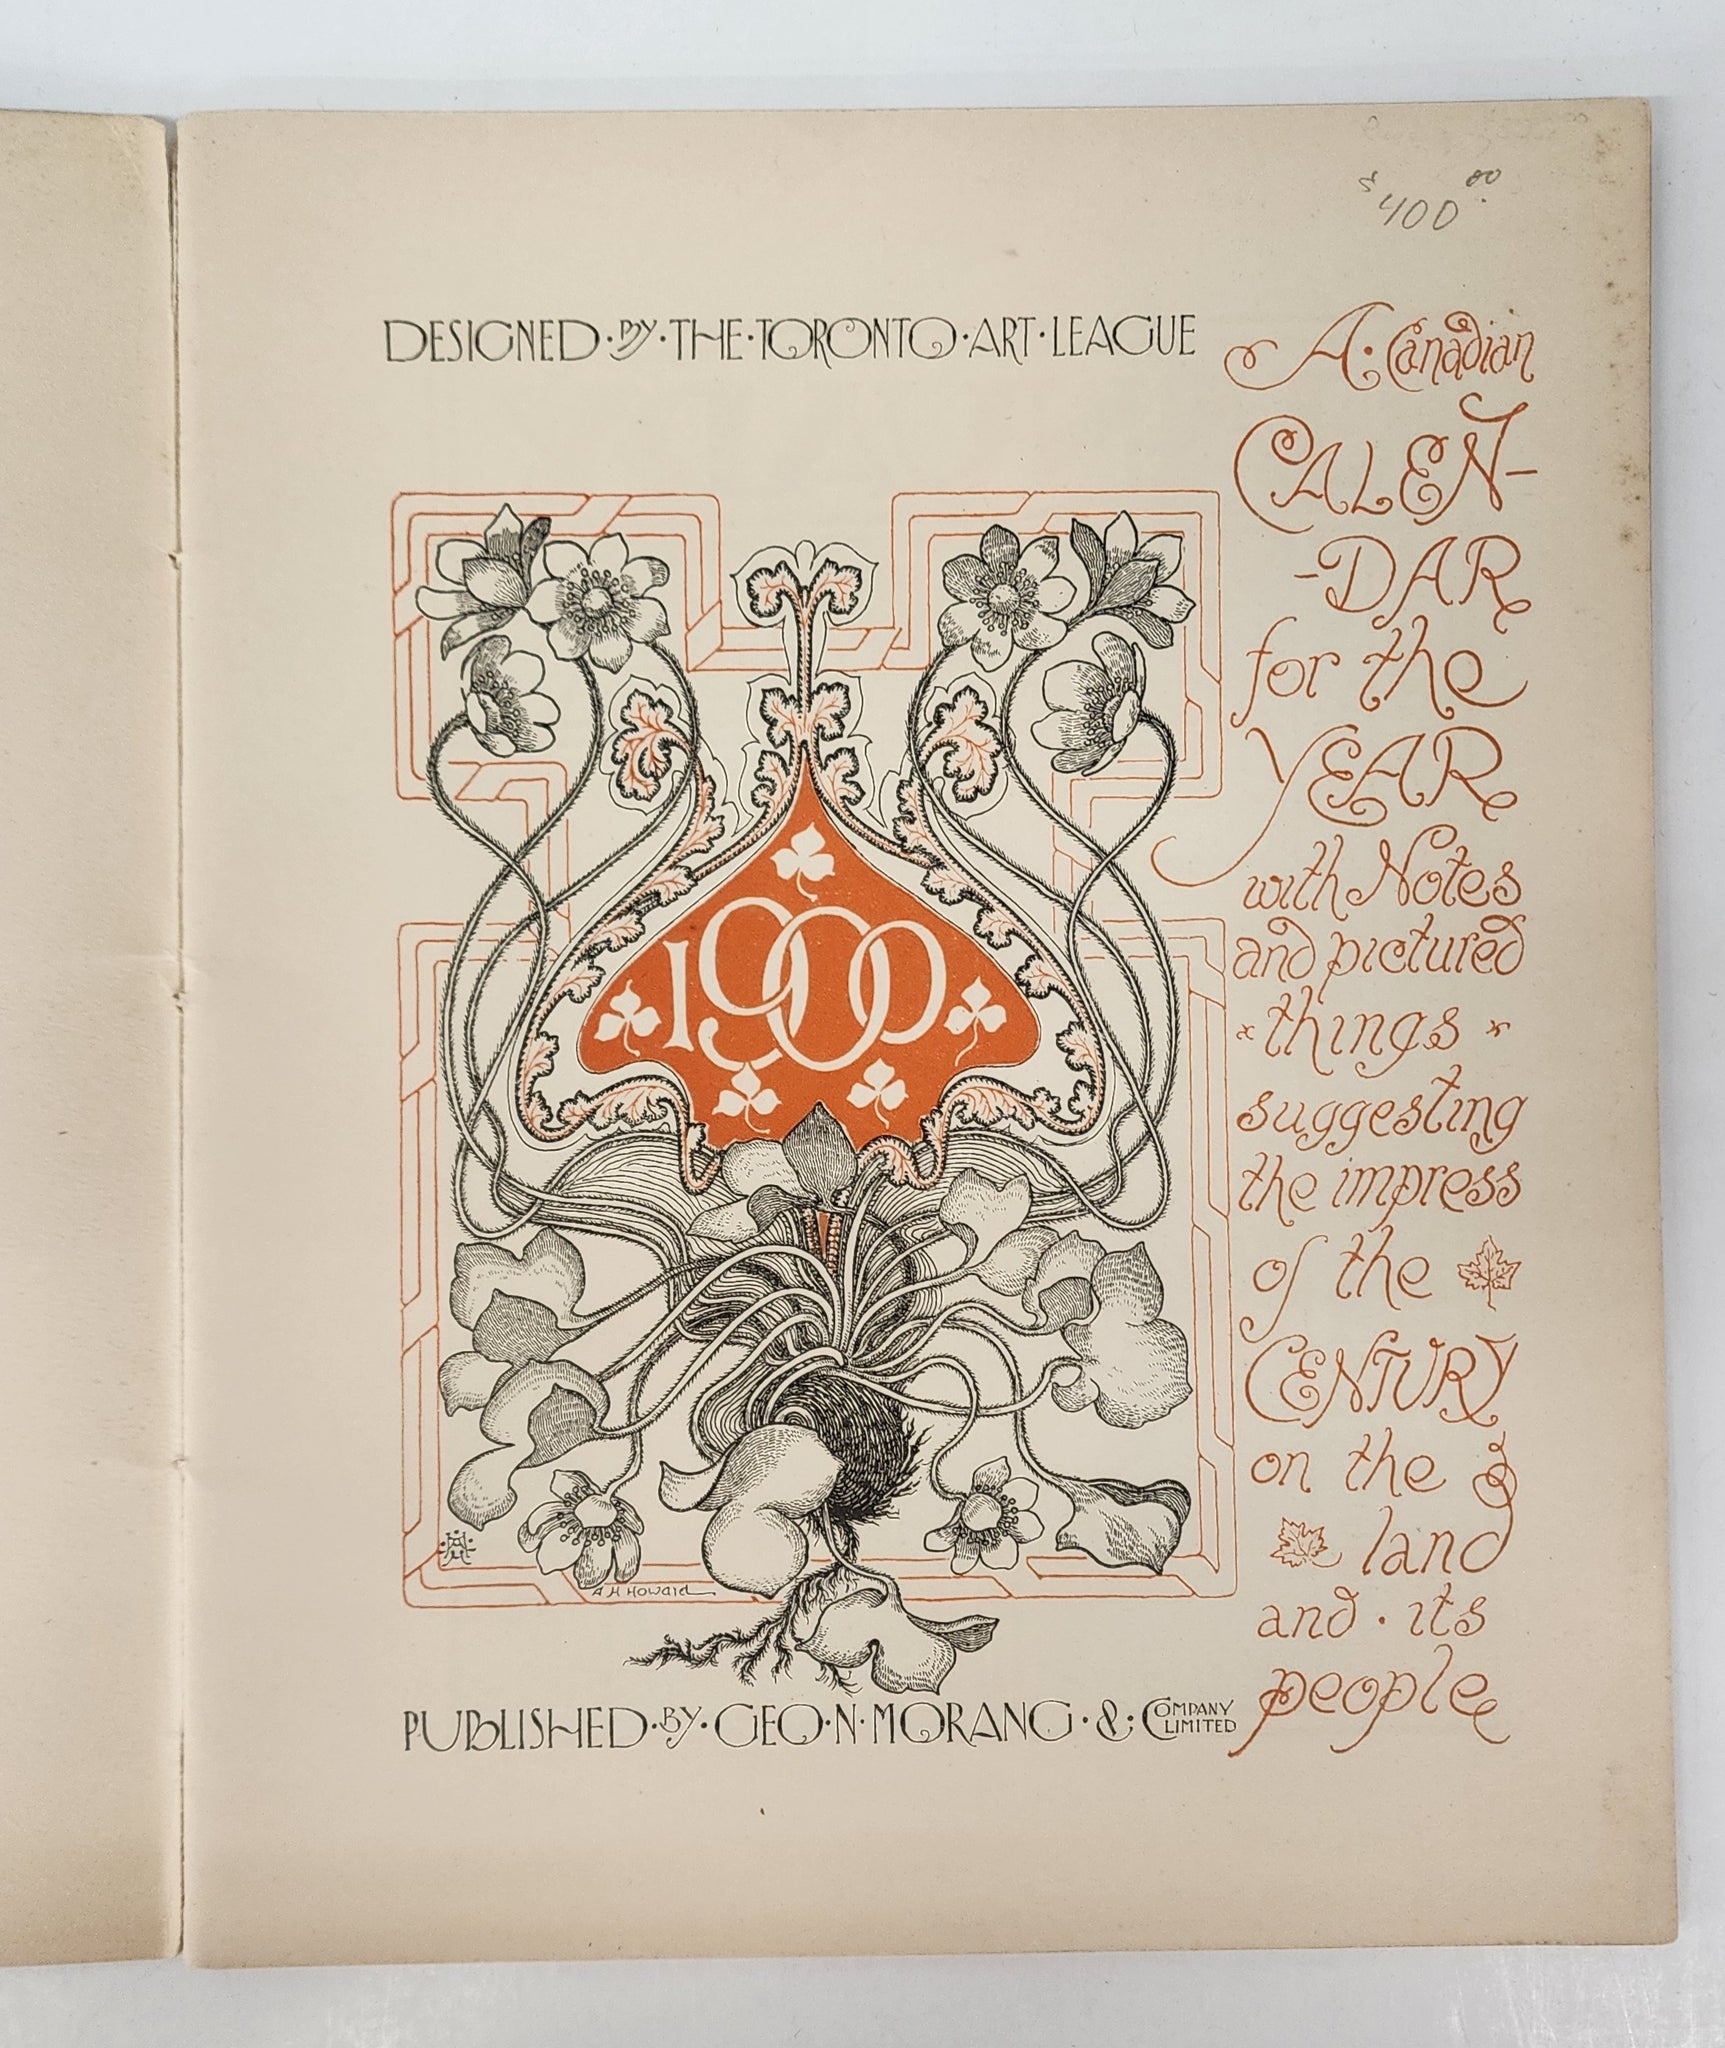 $400.00
DESIGNED·BY·THE·TORONTO·ART·LEAGUE
A·Canadian
CALEN-
-DAR
for the
YEAR
with Notes
and pictured
things
suggesting
the impress
of the
CENTURY
on the
land
and·its
people
1900
A H Howard
PUBLISHED·BY·GEO·N·MORANG·&·COMPANY LIMITED